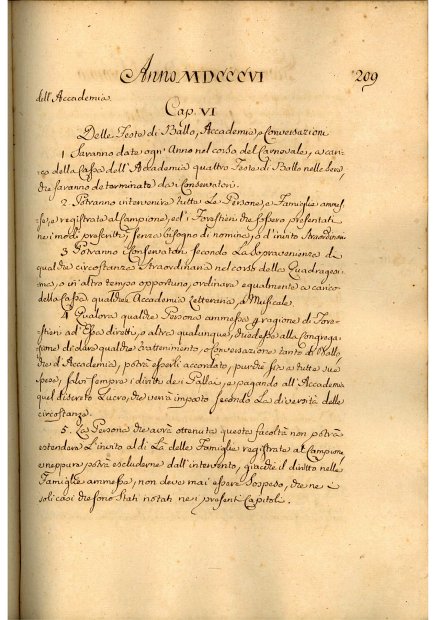 Anno MDCCCVI 209
dell'Accademia
Cap. VI
Delle Feste di Ballo, Accademie, e Conversazioni
1. Saranno date ogn'Anno nel corso del Carnovale, a cari-
co della Cassa dell'Accademia quattro Feste di Ballo nelle sere,
che saranno determinate dai Conservatori.
2. Potranno intervenire tutte Le Persone, e Famiglie ammes-
se, e registrate al Campione, ed i Forestieri che fossero presentati
ne i modi prescritti, senza bisogno di nomine, o d'invito Straordinario
3. Potranno i Conservatori secondo La Sopravenienza di
qualche circostanza Straordinaria nel corso della Quadragesi-
ma, o in altro tempo opportuno, ordinare egualmente a carico
della Cassa qualche Accademia Letteraria, o Musicale.
4. Qualora qualche Persona ammessa, o a ragione di Fore-
stieri ad Essa diretti, o altra qualunque, chiedesse alla Congrega-
zione di dare qualche trattenimento, o Conversazione tanto di Ballo,
che d'Accademia, potrà esserli accordato, purché sia a tutte sue
spese, salvi sempre i diritti dei Palchi, e pagando all'Accademia
quel discreto Lucro, che verrà imposto secondo La diversità delle
circostanze.
5. La Persona che avrà ottenuta questa facoltà non potrà
estendere L'invito al di Là delle Famiglie registrate al Campione,
e neppure potrà escluderne dall'intervento, giacché il diritto nelle
Famiglie ammesse, non deve mai essere Sospeso, che ne i
soli casi che sono Stati notati ne i presenti Capitoli.